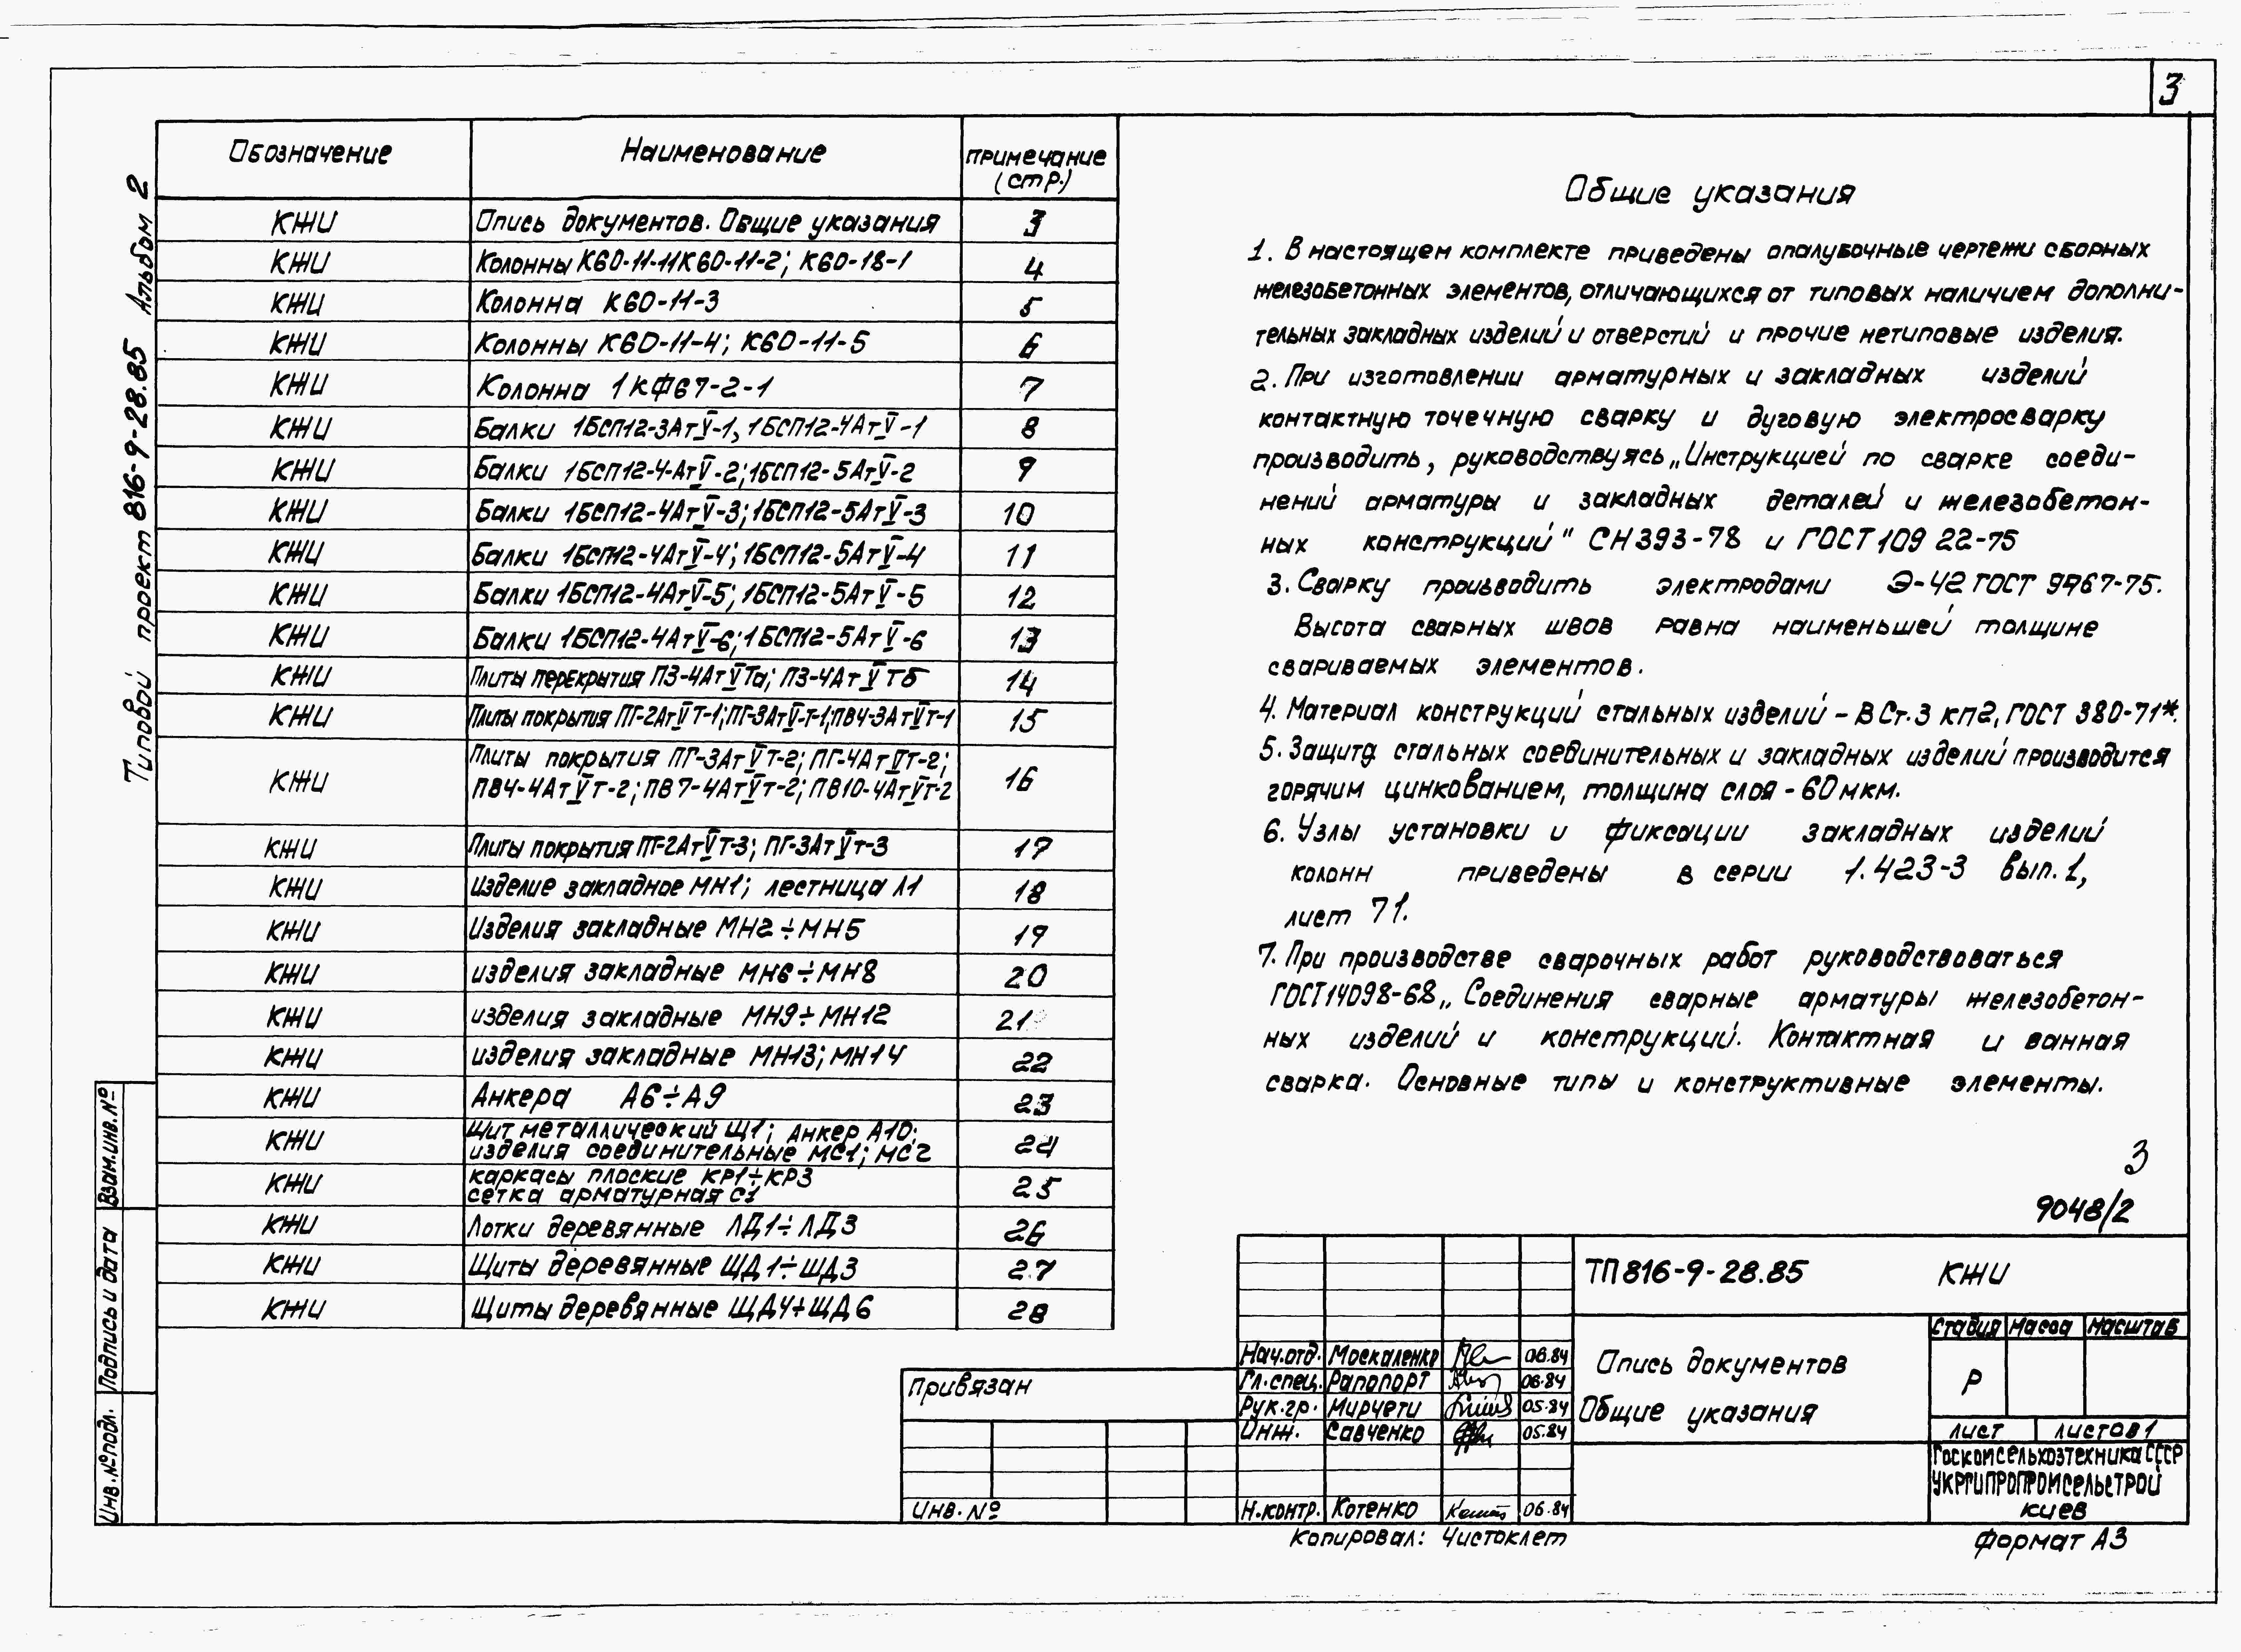 3
Типовой проект 816-9-28.85 Альбом 2
Обозначение Наименование примечание (стр.)
КЖИ Опись документов. Общие указания 3
КЖИ Колонны К60-11-1 К60-11-2; К60-18-1 4
КЖИ Колонна К60-11-3 5
КЖИ Колонны К60-11-4; К60-11-5 6
КЖИ Колонна 1КФ67-2-1 7
КЖИ Балки 1БСП12-3АтV-1, 1БСП12-4АтV-1 8
КЖИ Балки 1БСП12-4-АтV-2; 1БСП12-5АтV-2 9
КЖИ Балки 1БСП12-4АтV-3; 1БСП12-5АтV-3 10
КЖИ Балки 1БСП12-4АтV-4; 1БСП12-5АтV-4 11
КЖИ Балки 1БСП12-4АтV-5; 1БСП12-5АтV-5 12
КЖИ Балки 1БСП12-4АтV-6; 1БСП12-5АтV-6 13
КЖИ Плиты перекрытия П3-4АтVТа; П3-4АтVТб 14
КЖИ Плиты покрытия ПГ-2АтVТ-1; ПГ-3АтV-Т-1; ПВ4-3АтVт-1 15
КЖИ Плиты покрытия ПГ-3АтVт-2; ПГ-4АтVт-2;
ПВ4-4АтVт-2; ПВ7-4АтVт-2; ПВ10-4АтVт-2 16
КЖИ Плиты покрытия ПГ-2АтVт-3; ПГ-3АтVт-3 17
КЖИ Изделие закладное МН1; лестница Л1 18
КЖИ Изделия закладные МН2÷МН5 19
КЖИ изделия закладные МН6÷МН8 20
КЖИ изделия закладные МН9÷МН12 21
КЖИ изделия закладные МН13; МН14 22
КЖИ Анкера А6÷А9 23
КЖИ Щит металлический Щ1; Анкер А10;
изделия соединительные МС1; МС2 24
КЖИ каркасы плоские КР1÷КР3
сетка арматурная С1 25
КЖИ Лотки деревянные ЛД1÷ЛД3 26
КЖИ Щиты деревянные ЩД1÷ЩД3 27
КЖИ Щиты деревянные ЩД4÷ЩД6 28
Общие указания
1. В настоящем комплекте приведены опалубочные чертежи сборных
железобетонных элементов, отличающихся от типовых наличием дополни-
тельных закладных изделий и отверстий и прочие нетиповые изделия.
2. При изготовлении арматурных и закладных изделий
контактную точечную сварку и дуговую электросварку
производить, руководствуясь „Инструкцией по сварке соеди-
нений арматуры и закладных деталей и железобетон-
ных конструкций" СН 393-78 и ГОСТ 109 22-75
3. Сварку производить электродами Э-42 ГОСТ 9467-75.
Высота сварных швов равна наименьшей толщине
свариваемых элементов.
4. Материал конструкций стальных изделий - В Ст.3 кп2, ГОСТ 380-71*.
5. Защита стальных соединительных и закладных изделий производится
горячим цинкованием, толщина слоя - 60 мкм.
6. Узлы установки и фиксации закладных изделий
колонн приведены в серии 1.423-3 вып. 1,
лист 71.
7. При производстве сварочных работ руководствоваться
ГОСТ 14098-68 „Соединения сварные арматуры железобетон-
ных изделий и конструкций. Контактная и ванная
сварка. Основные типы и конструктивные элементы.
3
9048/2
ТП 816-9-28.85 КЖИ
Опись документов
Общие указания
Стадия Масса Масштаб
Р
лист листов 1
Госкомсельхозтехника СССР
Укргипропромсельстрой
Киев
Нач.отд. Москаленко 06.84
Гл.спец. Рапопорт 06.84
Рук.гр. Мирчети 05.84
Инж. Савченко 05.84
Н.контр. Котенко 06.84
Привязан
Инв. №
Взам.инв.№
Подпись и дата
Инв.№подл.
Копировал: Чистоклет
Формат А3